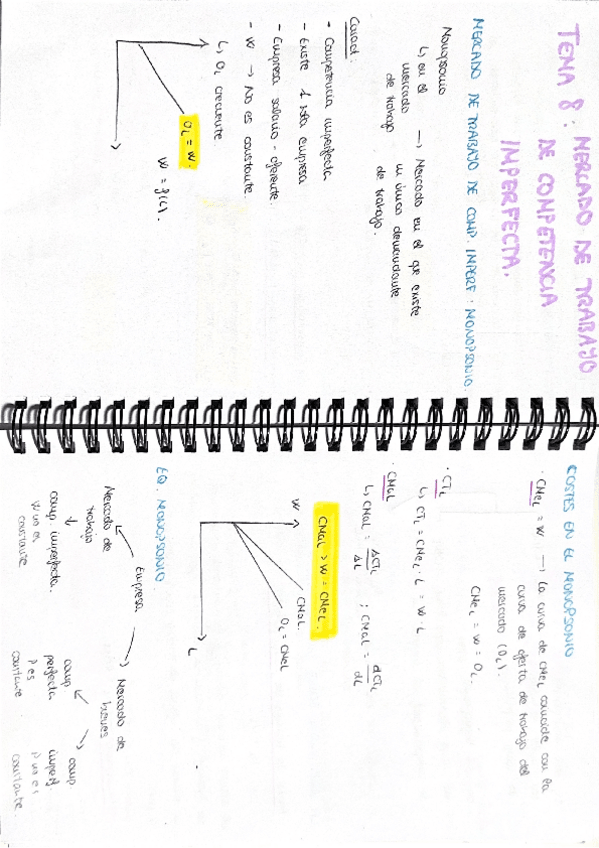 TEMA 8: MERCADO DE TRABAJO
DE COMPETENCIA
IMPERFECTA.
MERCADO DE TRABAJO DE COMP. IMPERF: MONOPSONIO
Monopsonio
↳ en el → Mercado en el que existe
mercado un único demandante
de trabajo de trabajo.
Caract.
- Competencia imperfecta
- Existe 1 sola empresa
- Empresa salario - oferente.
- W → No es constante.
↳ OL creciente
OL = W.
W = f(L).
COSTES EN EL MONOPSONIO
· CMeL = W → La curva de CMeL coincide con la
curva de oferta de trabajo del
mercado (OL).
CMeL = W = OL.
· CTL
↳ CTL = CMeL · L = W · L
· CMaL
↳ CMaL = ΔCTL / ΔL ; CMaL = dCTL / dL
CMaL > W = CMeL.
W
CMaL
OL = CMeL
L
EQ. MONOPSONIO.
Empresa
Mercado de
trabajo
↓
comp. imperfecta.
W no es
constante
Mercado de
bienes
comp
perfecta
P es
constante
comp
imperf
P no es
constante.